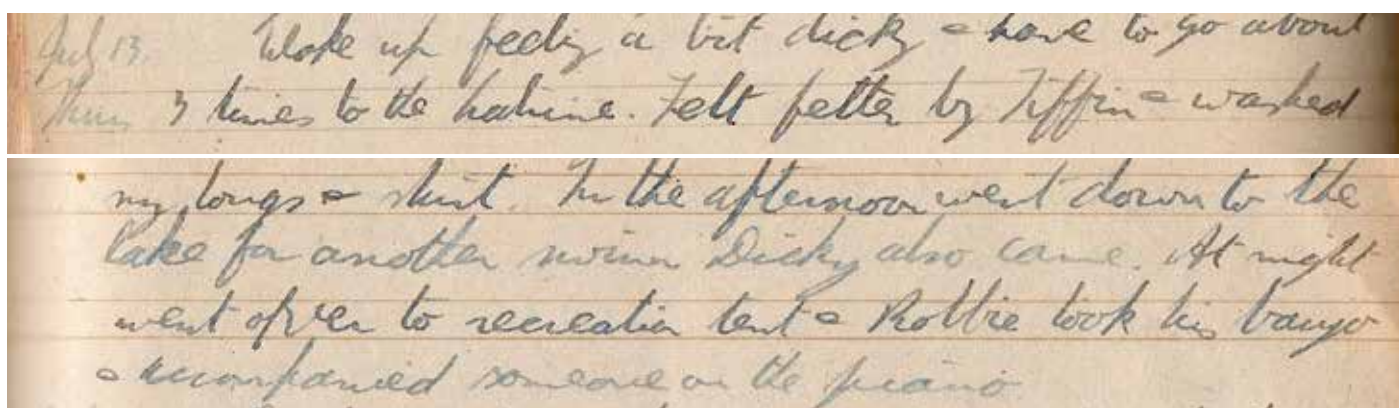 July 13. Woke up feeling a bit dicky & have to go about
Thurs 3 times to the latrine. Felt better by Tiffin & washed
my longs & shirt. In the afternoon went down to the
lake for another swim Dicky also came. At night
went over to recreation tent & Robbie took his banjo
& accompanied someone on the piano